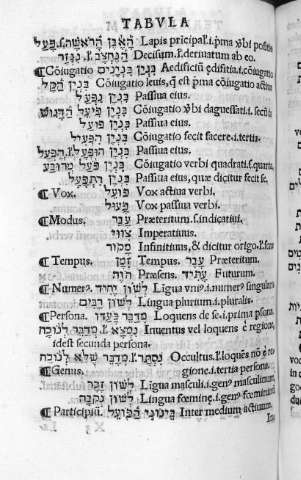 TABVLA
האבן הראשה. ל. בפעל Lapis pricipal'.i.pma v̄bi positio
הנחצב. ל. נגזר Decisum.ſ.deriuatum ab eo.
¶Cōiugatio בנין בנינים Aedificiū ędifitia.i.cōiugatio
בנין הקל Cōiugatio leuis, q̄ est pma cōiugatio actiua
בנין נפעל Paſſiua eius.
בנין פיעל הדגוש Cōiugatio v̄bi dagueſſati.i.ſecū
בנין פועל Paſſiua eius.
בנין הפעיל Cōiugatio fecit facere.i.tertia.
בנין הופעל. ל. הפעל Paſſiua eius.
בנין פועל מרובע Cōiugatio v̄bi quadrati.ſ.quarta.
בנין התפעל Paſſiua eius, quæ dicitur fecit ſe.
¶Vox. פועל Vox actiua verbi.
פעול Vox paſſiua verbi.
¶Modus. עבר Præteritum.ſ.indicatiui.
צווי Imperatiuus.
מקור Infinitiuus, & dicitur origo.ſ.
¶Tempus. זמן Tempus עבר Præteritum.
הוה Præſens. עתיד Futurum.
¶Numer⁹ לשון יחיד Ligua vni⁹.i.numer⁹ ſingularis
לשון רבים Ligua plurium.i.pluralis.
¶Perſona. מדבר בעדו Loquens de ſe.i.prima pſona.
נמצא. ל. מדבר לנוכח Inuentus vel loquens ē regione,
ideſt ſecunda perſona.
נסתר. ל. מדבר שלא לנוכח Occultus.ſ.loquēs nō ē re
¶Genus. gione.i.tertia perſona
לשון זכר Ligua maſculi.i.gen⁹ maſculinum
לשון נקבה Ligua fœmine.i.gen⁹ fœmininum
¶Participiū. בינוני הפועל Inter medium actiuum.